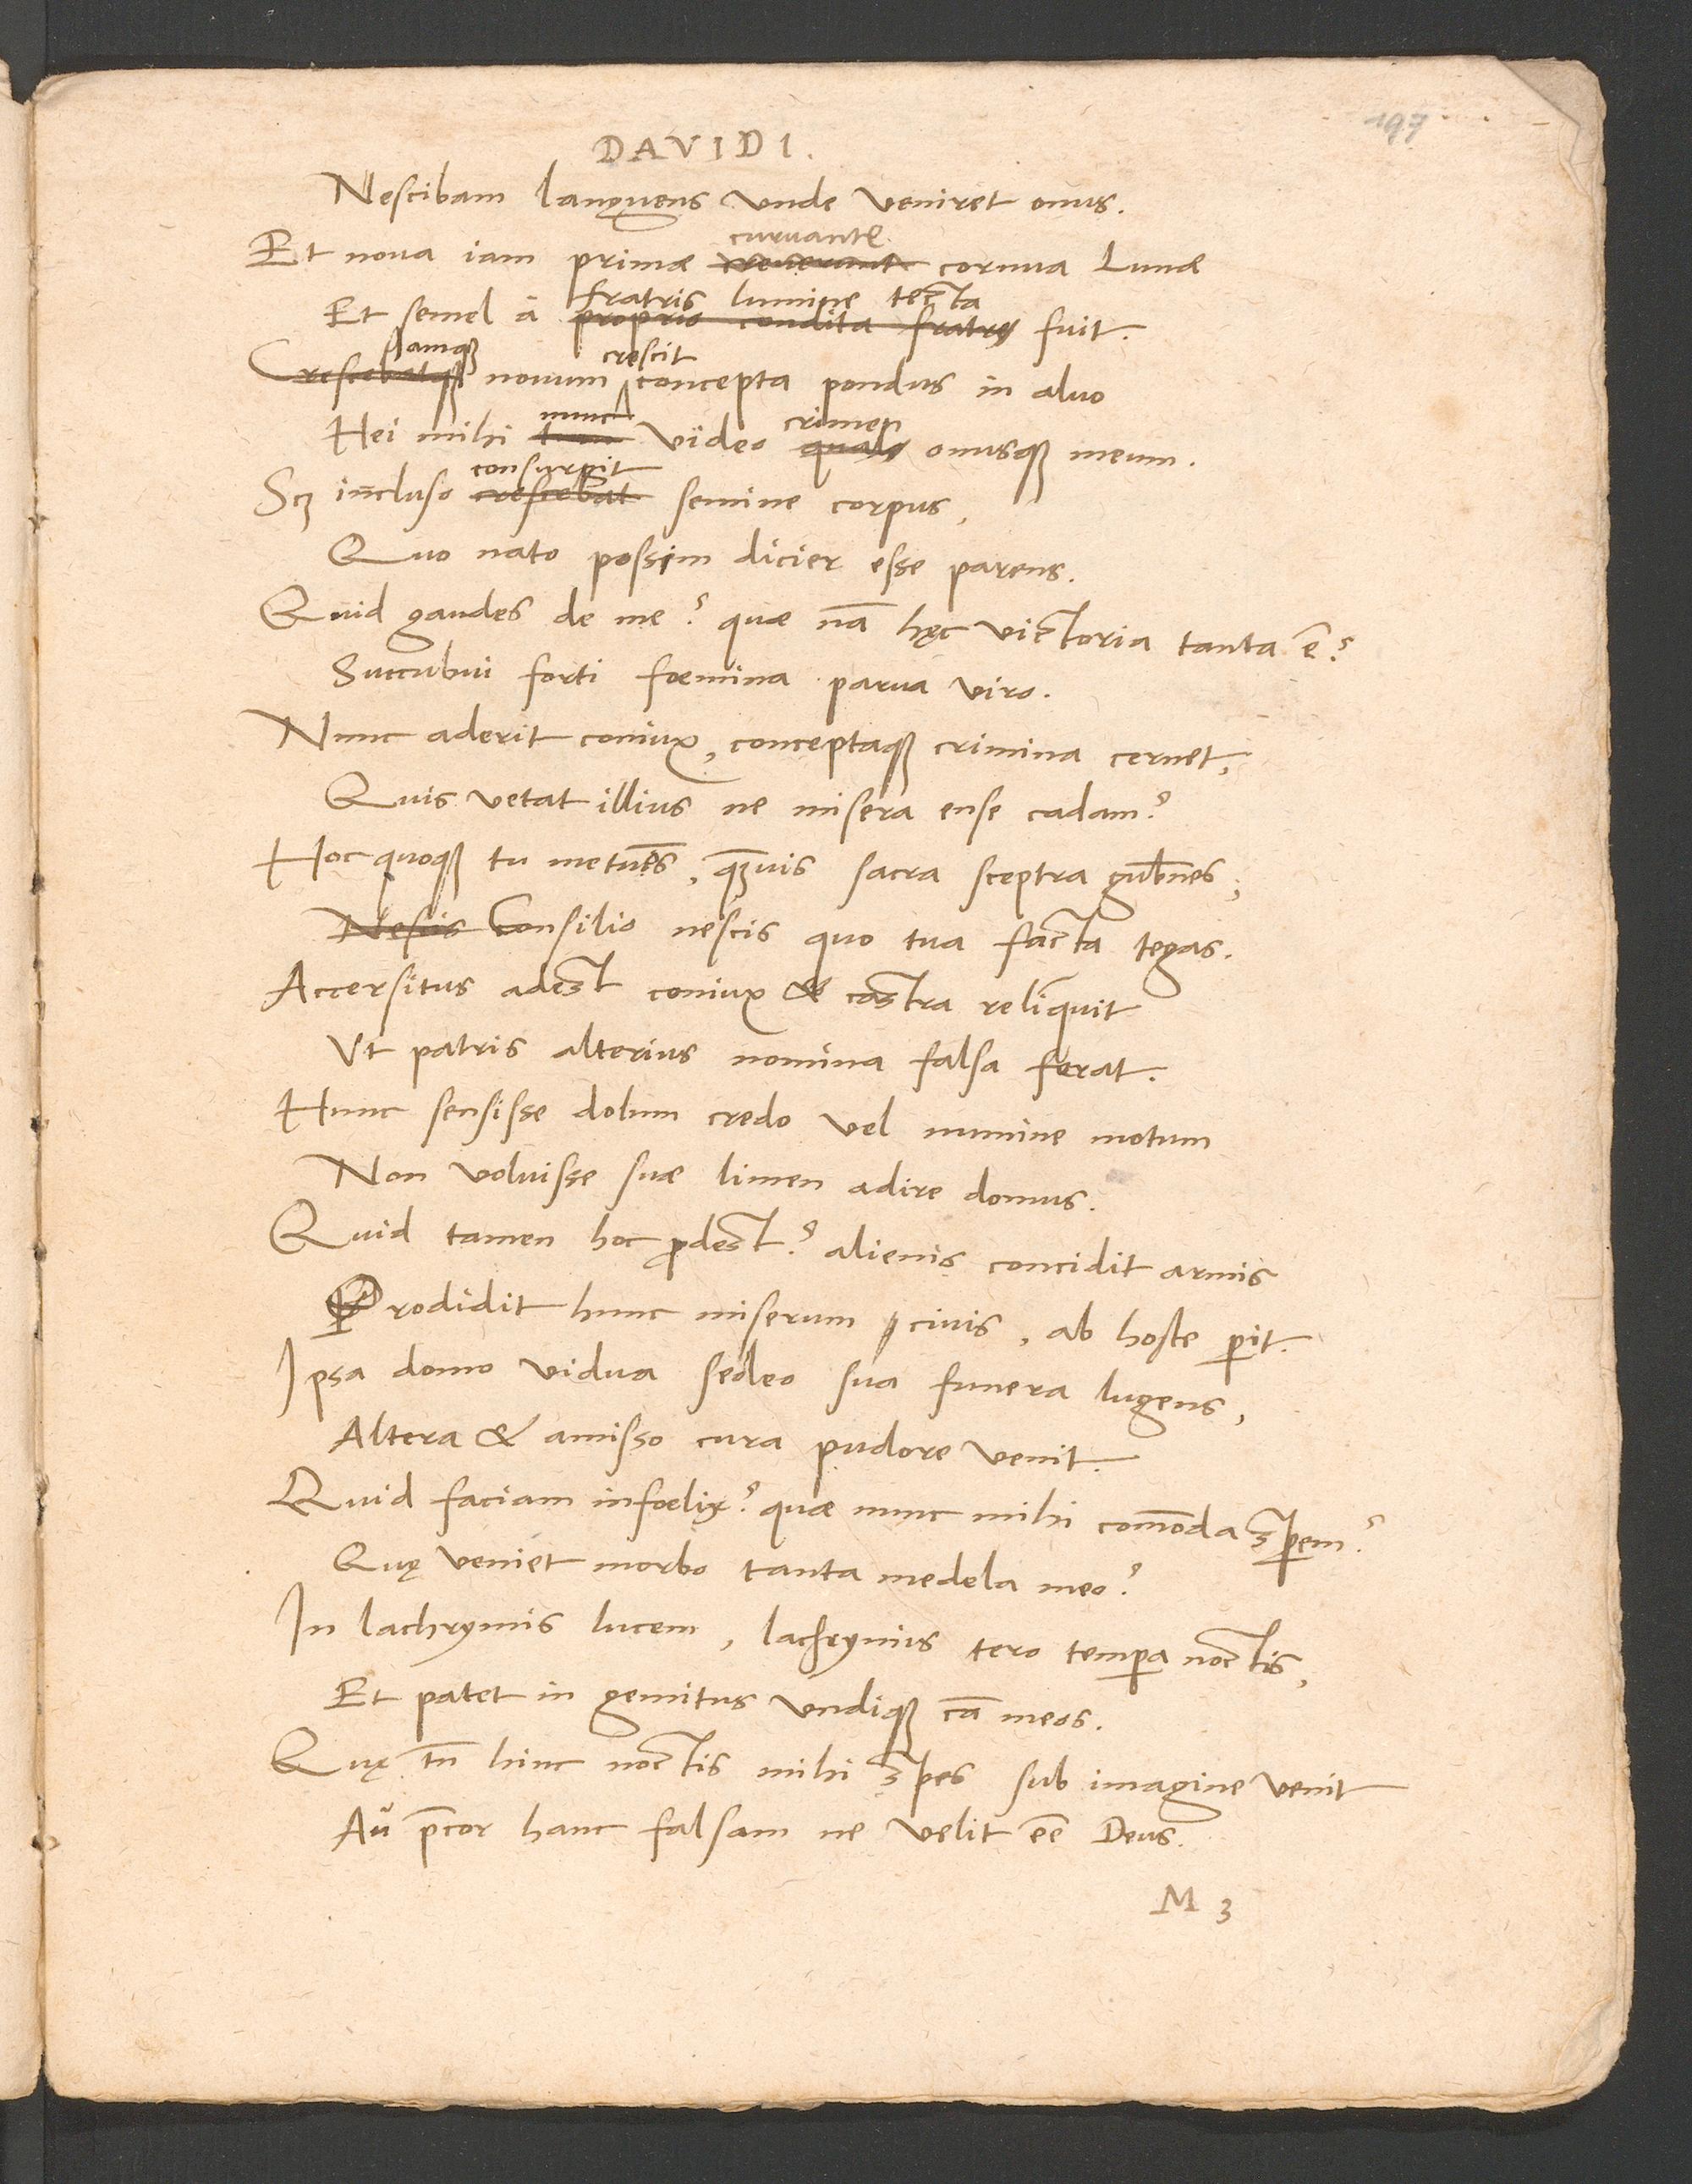 197
DAVIDI.
Nescibam languens unde veniret onus.
curvante
Et nova iam primæ creverant cornua Lunæ
fratris lumine tecta
Et semel à proprio condita fratre fuit.
Iamqꝫ crescit
Crescebatqꝫ novum concepta pondus in alvo
nunc crimen
Hei mihi video quale onusqꝫ meum.
consurgit
Scꝫ incluso crescebat semine corpus,
Quo nato possim dicier esse parens.
Quid gaudes de me? quæ nā hęc victoria tanta ē?
Succubui forti fœmina parva viro.
Nunc aderit coniux, conceptaqꝫ crimina cernet,
Quis vetat illius ne misera ense cadam?
Hoc quoqꝫ tu metuēs, qꝫvis sacra sceptra gubnes,
Nescis Consilio nescis quo tua facta tegas.
Accersitus adest coniux & castra reliquit
Ut patris alterius nomina falsa ferat.
Hunc sensisse dolum credo vel numine motum
Non voluisse suæ limen adire domus.
Quid tamen hoc ꝓdest? alienis concidit armis
Prodidit hunc miserum civis, ab hoste ꝑit.
Ipsa domo vidua sedeo sua funera lugens,
Altera & amisso cura pudore venit.
Quid faciam infœlix? quæ nunc mihi com̄oda spem?
Quę veniet morbo tanta medela meo?
In lachrymis lucem, lachrymis tero temꝑa noctis,
Et patet in gemitus undiqꝫ cā meos.
Quę tn̄ hinc noctis mihi spes sub imagine venit
Aū p̄cor hanc falsam ne velit eē Deus.
M 3